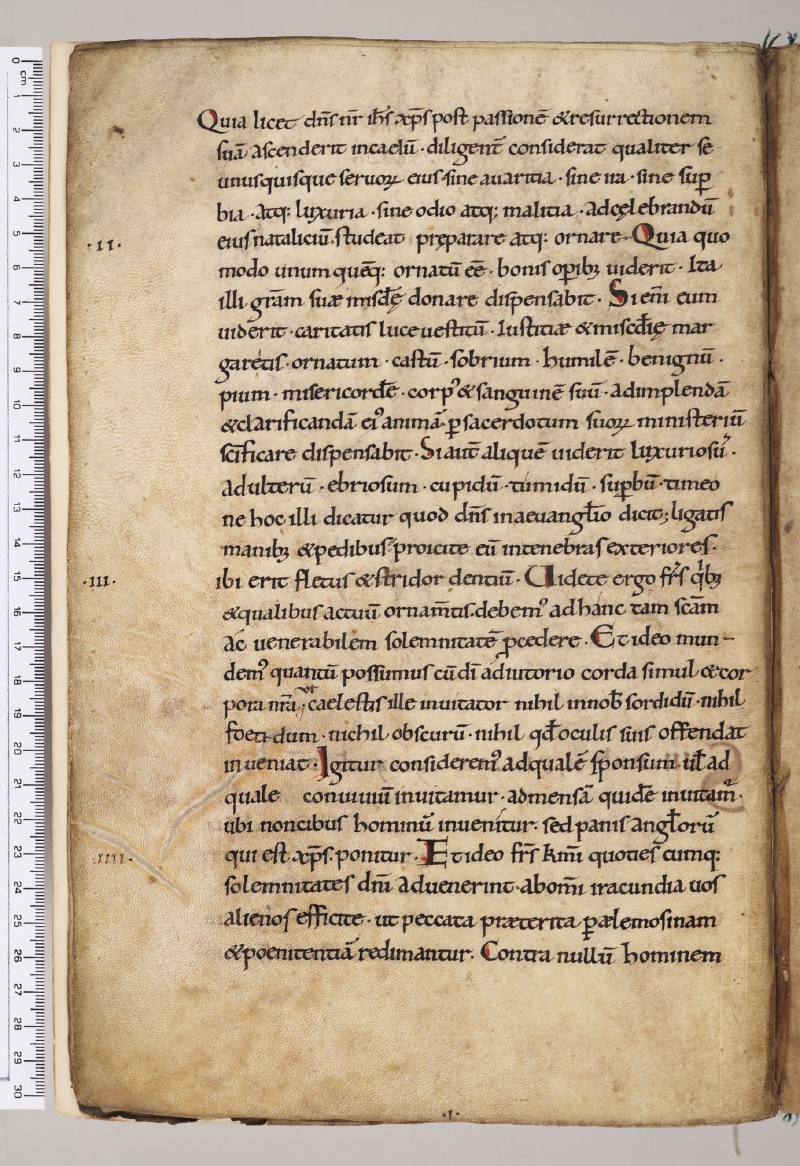 Quia licet dn̄s nr̄ ihs̄ xp̄s post passionē & resurrectionem
suā ascenderit in caelū · diligent̄ considerat qualiter se
unusquisque seruoꝝ eius sine auaritia · sine ira · sine suꝑ
bia · atq: luxuria · sine odio atq; malitia · ad cęlebrandū
·II· eius nataliciū · studeat preparare atq: ornare · Quia quo
modo unum quēq: ornatū eē · bonis oꝑibꝫ uiderit · Ita
illi gr̄am suæ misd̄ę donare dispensabit · Si eni̅ eum
uiderit · caritatis luce uestitū · Iustitiæ & miscd̄ię mar
garetis · ornatum · castū · sobrium · humilē · benignū ·
pium · misericordē · corpꝰ & sanguinē suū · ad implendā
& clarificandā eiꝰ animā · ꝑ sacerdotum suoꝝ ministeriū
sc̄ificare dispensabit · Si aut̄ aliquē uiderit luxuriosū ·
adulterū · ebriosum · cupidū · tumidū · suꝑbū · timeo
ne hoc illi dicatur quod dn̄s in aeuangl̄io dicit; ligatis
manibꝫ & pedibus · proicite eū in tenebras exteriores ·
·III· ibi erit fletus & stridor dentiū · Uidete ergo fr̄s qͥbꝫ
& qualibus actuū ornam̄tis · debemꝰ ad hanc tam sc̄am
ac uenerabilem solemnitatē ꝓcedere · Et ideo mun-
demꝰ quantū possimus cū dī adiutorio corda simul & cor
pora nr̄a · ut caelestis ille inuitator nihil in nob̄ sordidū · nihil
foetidum · nichil obscurū · nihil qd̄ oculis suis offendat
inueniat · Igitur consideremꝰ ad qualē sponsum · ul̄ ad
quale conuiuiū inuitamur · ad mensā quidē inuitam̄ ·
ubi non cibus hominū inuenitur · sed panis angl̄orū
·IIII· qui est xp̄s · ponitur · Et ideo fr̄s km̄i quoties cumq:
solemnitates dn̄i aduenerint · ab om̄i iracundia uos
alienos efficite · ut peccata præterita ꝑ ælemosinam
& poenitentiā redimantur · Contra nullū hominem
·I·
0 cm 1 2 3 4 5 6 7 8 9 10 11 12 13 14 15 16 17 18 19 20 21 22 23 24 25 26 27 28 29 30